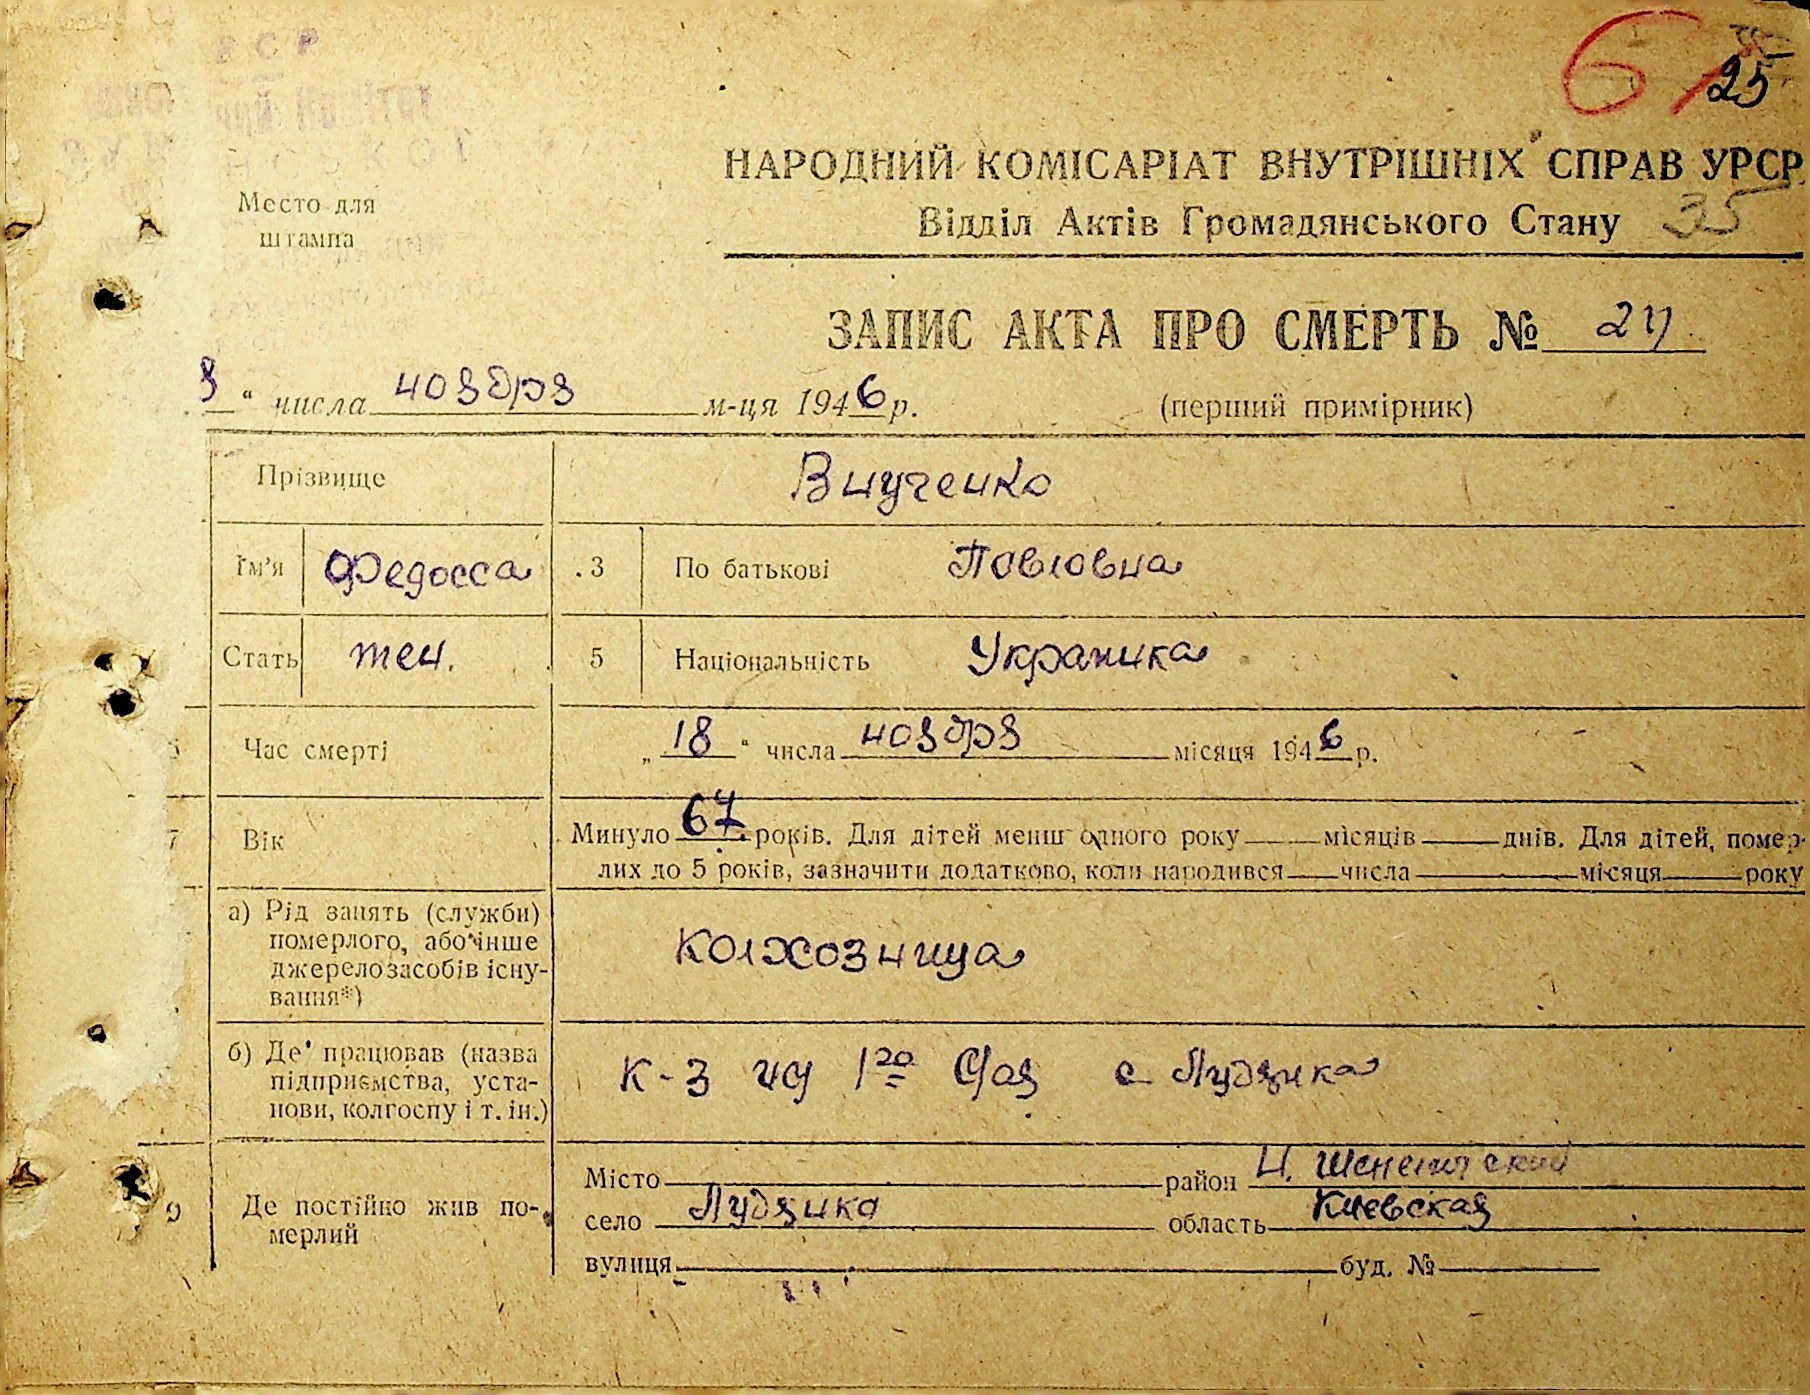 6
25
НАРОДНИЙ КОМІСАРІАТ ВНУТРІШНІХ СПРАВ УРСР
Відділ Актів Громадянського Стану 35
Место для
штампа
ЗАПИС АКТА ПРО СМЕРТЬ №
“ числа ноября м-ця 1946 р. (перший примірник)
Прізвище Внученко
Ім'я Федосса 3 По батькові Павловна
Стать жен. 5 Національність Украинка
Час смерті „18“ числа ноября місяця 1946 р.
7 Вік Минуло 67 років. Для дітей менш одного року місяців днів. Для дітей, помер-
лих до 5 років, зазначити додатково, коли народився числа місяця року
а) Рід занять (служби)
померлого, або інше
джерело засобів існу-
вання*)
колхозница
б) Де працював (назва
підприємства, уста-
нови, колгоспу і т. ін.)
К-з им 1го Мая с Лудянка
9 Де постійно жив по-
мерлий
Місто район
село Лудянка область Киевская
вулиця буд. №